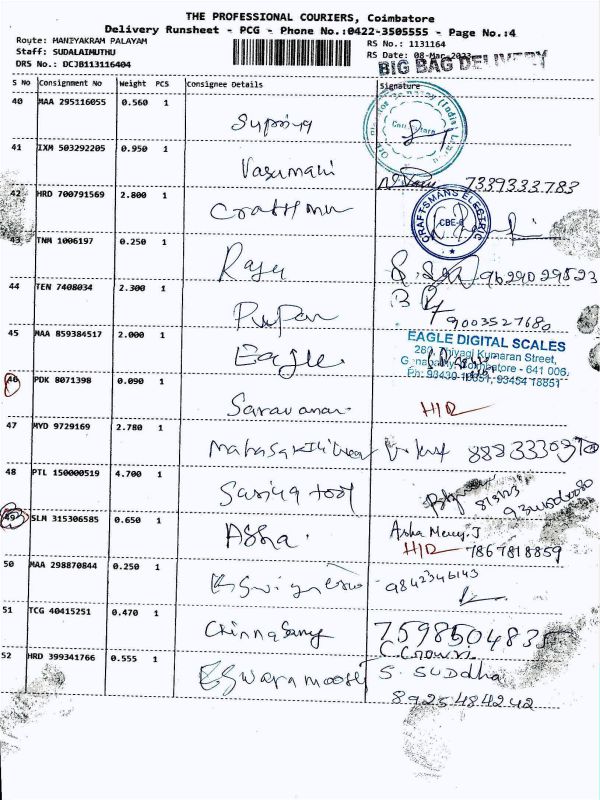 THE PROFESSIONAL COURIERS, Coimbatore
Delivery Runsheet - PCG - Phone No.:0422-3505555 - Page No.:4
Route: MANIYAKRAM PALAYAM
RS No.: 1131164
Staff: SUDALAIMUTHU
RS Date: 08-Mar-2023
DRS No.: DCJB113116404
BIG BAG DELIVERY
S No Consignment No Weight PCS Consignee Details Signature
40 MAA 295116055 0.560 1 Supriya
41 IXM 503292205 0.950 1 Vasumani
7339333783
42 HRD 700791569 2.800 1
CRAFTSMANS ELECTRIC
CBE-6
43 TNM 1006197 0.250 1 Raju
9629029523
44 TEN 7408034 2.300 1
9003527680
45 MAA 859384517 2.000 1 Eagle
EAGLE DIGITAL SCALES
260, Thiyagi Kumaran Street,
Ganapathy, Coimbatore - 641 006.
Ph: 93430 18851, 93454 18851
46 PDK 8071398 0.090 1 Saravanan
H/R
47 MYD 9729169 2.780 1
48 PTL 150000519 4.700 1 Sasiya tool
49 SLM 315306585 0.650 1 Asha
Asha Mercy.J
H/R 7867818859
50 MAA 298870844 0.250 1
9842346143
51 TCG 40415251 0.470 1 Chinnasamy
7598504835
52 HRD 399341766 0.555 1 Eswaramoorthy
S. SUDDHA
8925484242